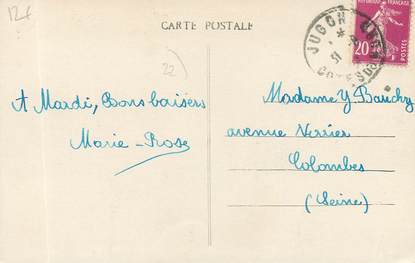 12f
CARTE POSTALE
22)
JUGON
CÔTES DU NORD
31
20
POSTES
A Mardi, Bons baisers
Marie-Rose
Madame Y. Bauchy
avenue Verrier
Colombes
(Seine)